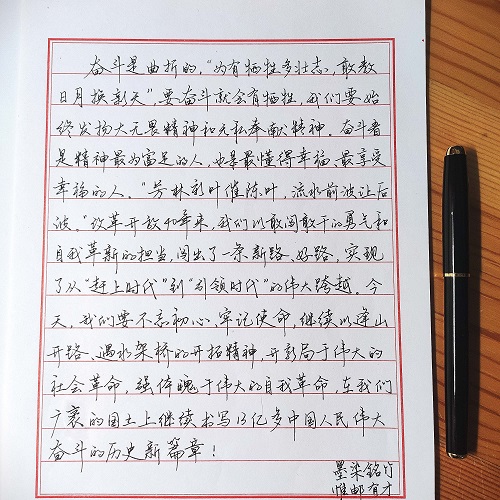 奋斗是曲折的，“为有牺牲多壮志，敢教
日月换新天”，要奋斗就会有牺牲，我们要始
终发扬大无畏精神和无私奉献精神。奋斗者
是精神最为富足的人，也是最懂得幸福、最享受
幸福的人。“芳林新叶催陈叶，流水前波让后
波。”改革开放40年来，我们以敢闯敢干的勇气和
自我革新的担当，闯出了一条新路、好路，实现
了从“赶上时代”到“引领时代”的伟大跨越。今
天，我们要不忘初心、牢记使命，继续以逢山
开路、遇水架桥的开拓精神，开新局于伟大的
社会革命，强体魄于伟大的自我革命，在我们
广袤的国土上继续书写13亿多中国人民伟大
奋斗的历史新篇章！
墨染铭竹
惟邮有才